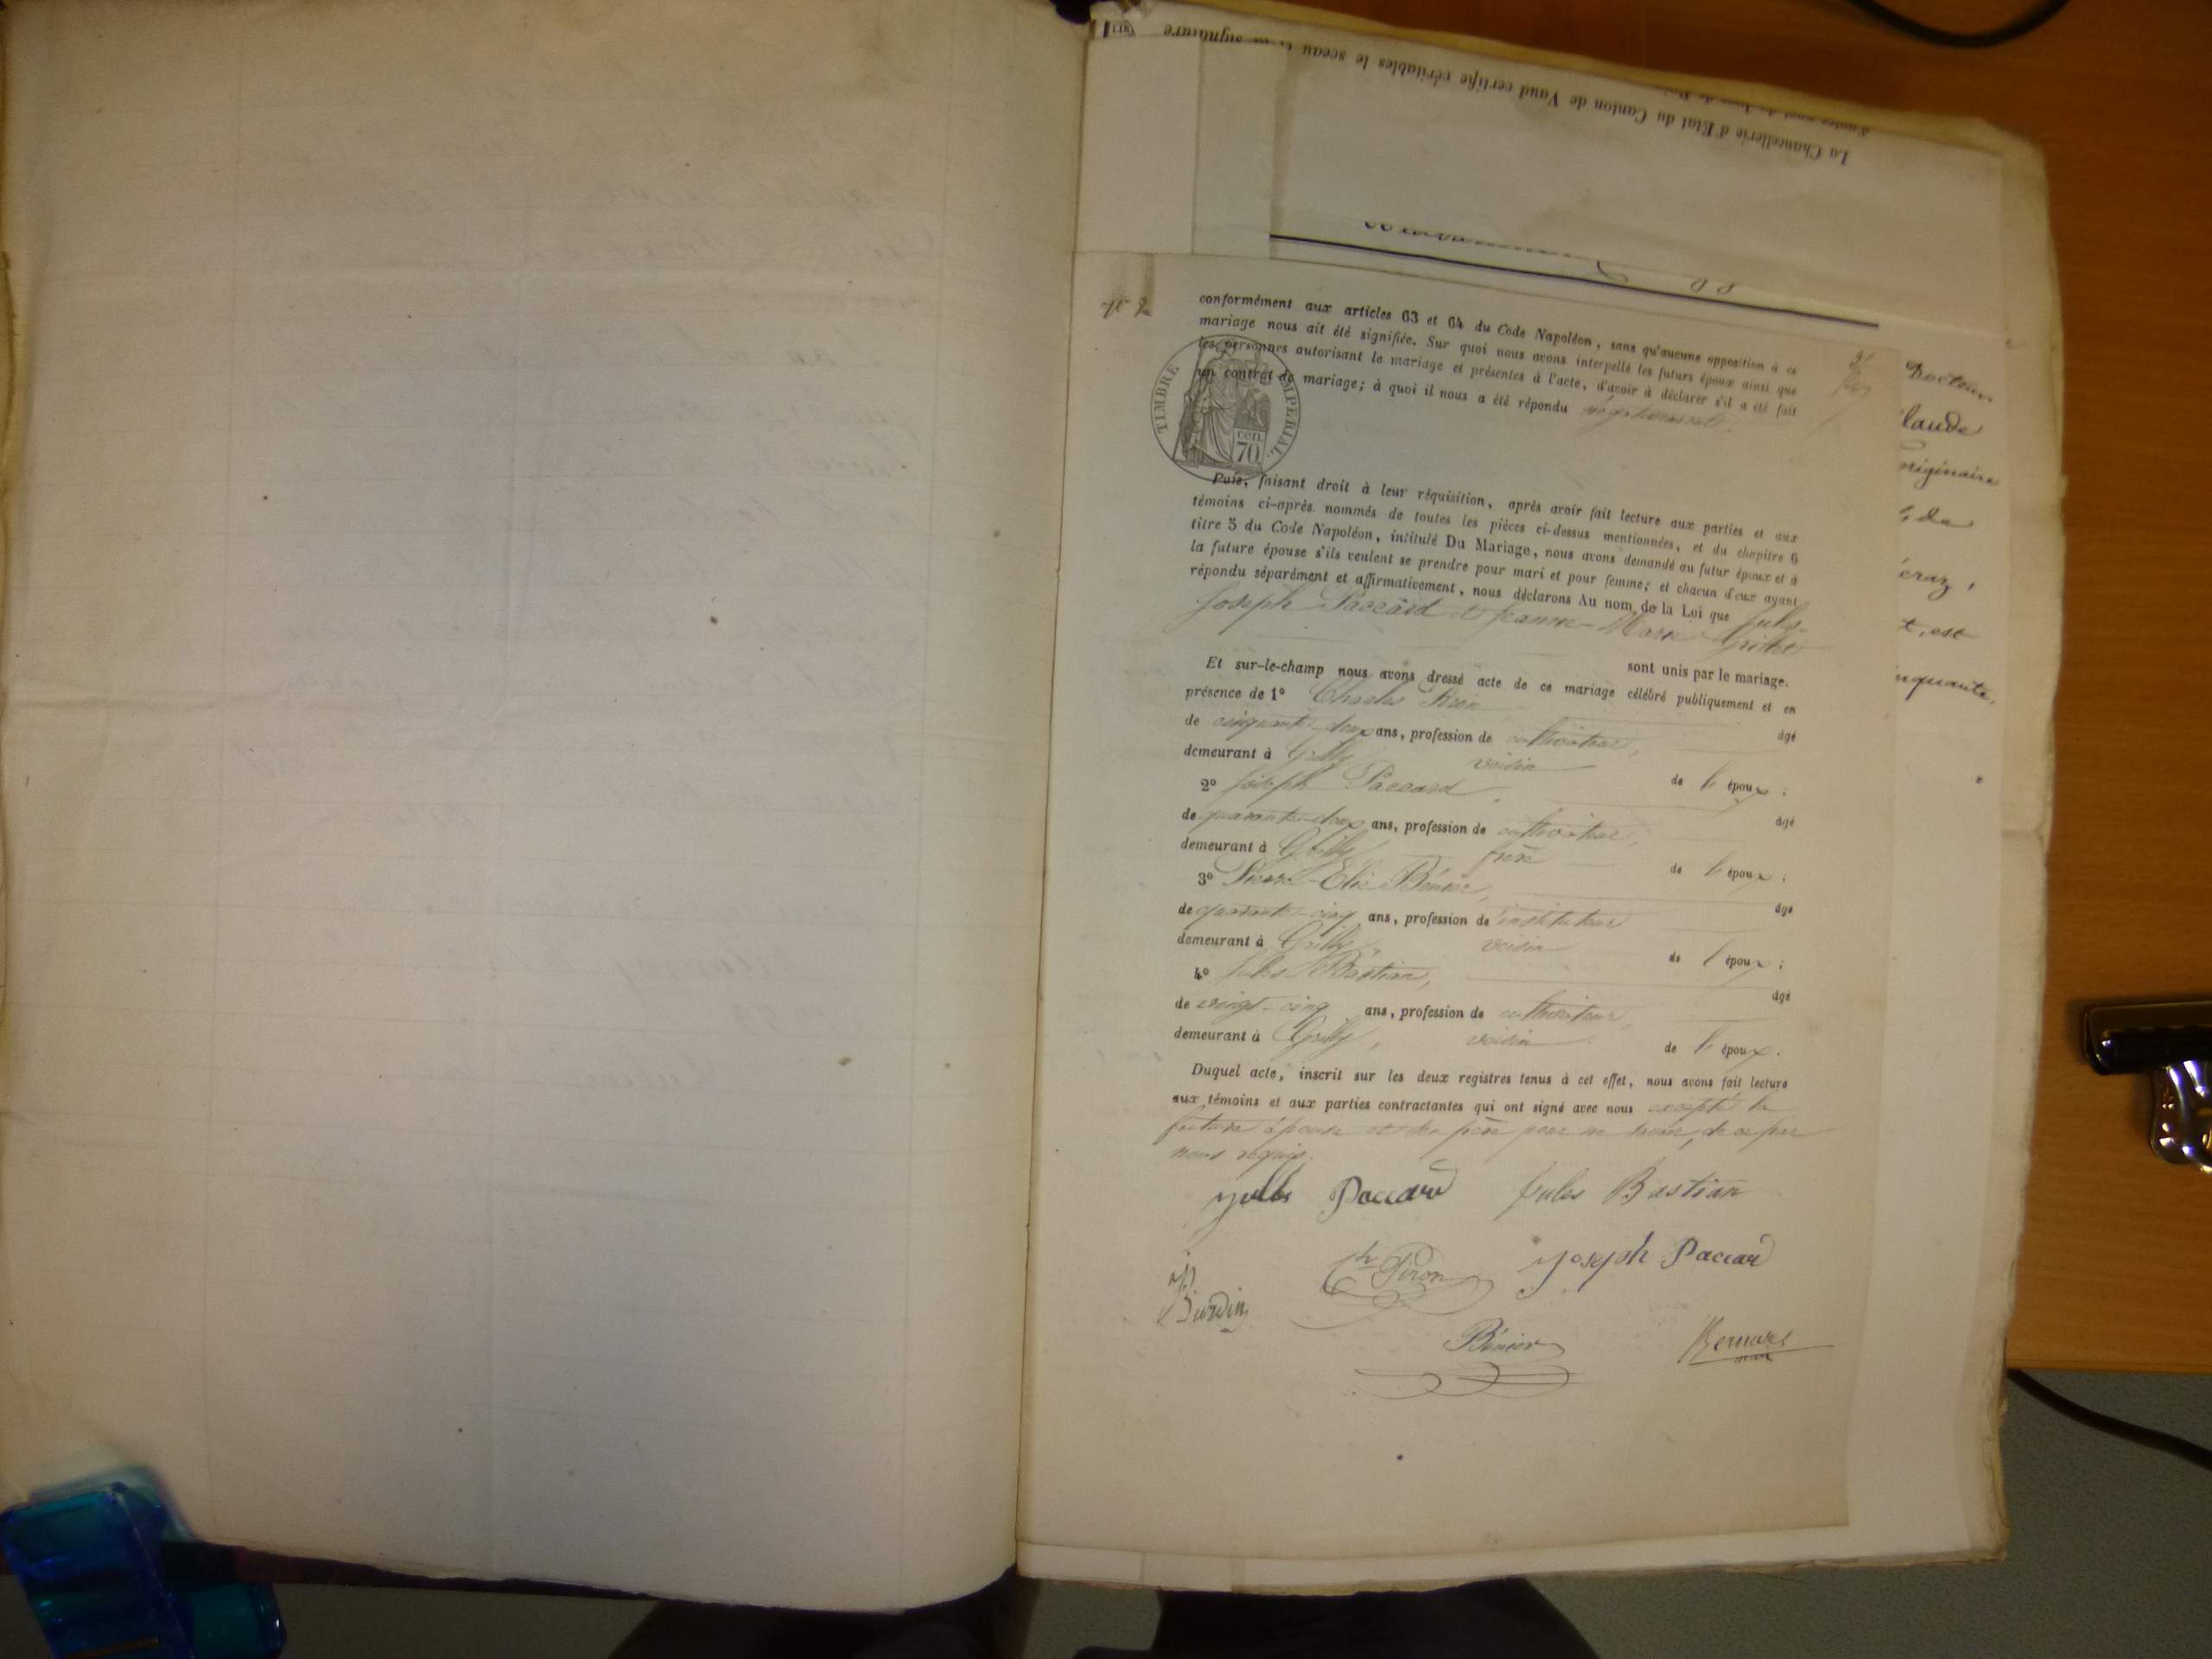 La Chancellerie d'Etat du Canton de Vaud certifie véritables le sceau et la signature
No 2
conformément aux articles 63 et 64 du Code Napoléon, sans qu'aucune opposition à ce
mariage nous ait été signifiée. Sur quoi nous avons interpellé les futurs époux ainsi que
les personnes autorisant le mariage et présentes à l'acte, d'avoir à déclarer s'il a été fait
un contrat de mariage; à quoi il nous a été répondu négativement.
TIMBRE IMPÉRIAL.
cen. 70.
Puis, faisant droit à leur réquisition, après avoir fait lecture aux parties et aux
témoins ci-après nommés de toutes les pièces ci-dessus mentionnées, et du chapitre 6
titre 5 du Code Napoléon, intitulé Du Mariage, nous avons demandé au futur époux et à
la future épouse s'ils veulent se prendre pour mari et pour femme; et chacun d'eux ayant
répondu séparément et affirmativement, nous déclarons Au nom de la Loi que Jules-
Joseph Paccard et Jeanne-Marie Grillet
sont unis par le mariage.
Et sur-le-champ nous avons dressé acte de ce mariage célébré publiquement et en
présence de 1º Charles Piron âgé
de cinquante-deux ans, profession de cultivateur,
demeurant à Grilly voisin de l'époux;
2º Joseph Paccard, âgé
de quarante-deux ans, profession de cultivateur,
demeurant à Grilly, frère de l'époux;
3º Pierre-Elie Bénier, âgé
de quarante-cinq ans, profession d'instituteur
demeurant à Grilly, voisin de l'époux;
4º Jules Bastian, âgé
de vingt-cinq ans, profession de cultivateur,
demeurant à Grilly, voisin de l'époux.
Duquel acte, inscrit sur les deux registres tenus à cet effet, nous avons fait lecture
aux témoins et aux parties contractantes qui ont signé avec nous excepté la
future épouse et père pour ne savoir, de ce par
nous requis.
Jules Paccard Jules Bastian
Ch Piron Joseph Paccard
Burdin
Bénier
Docteur
laude
originaire
de
craz,
t, est
nquante,